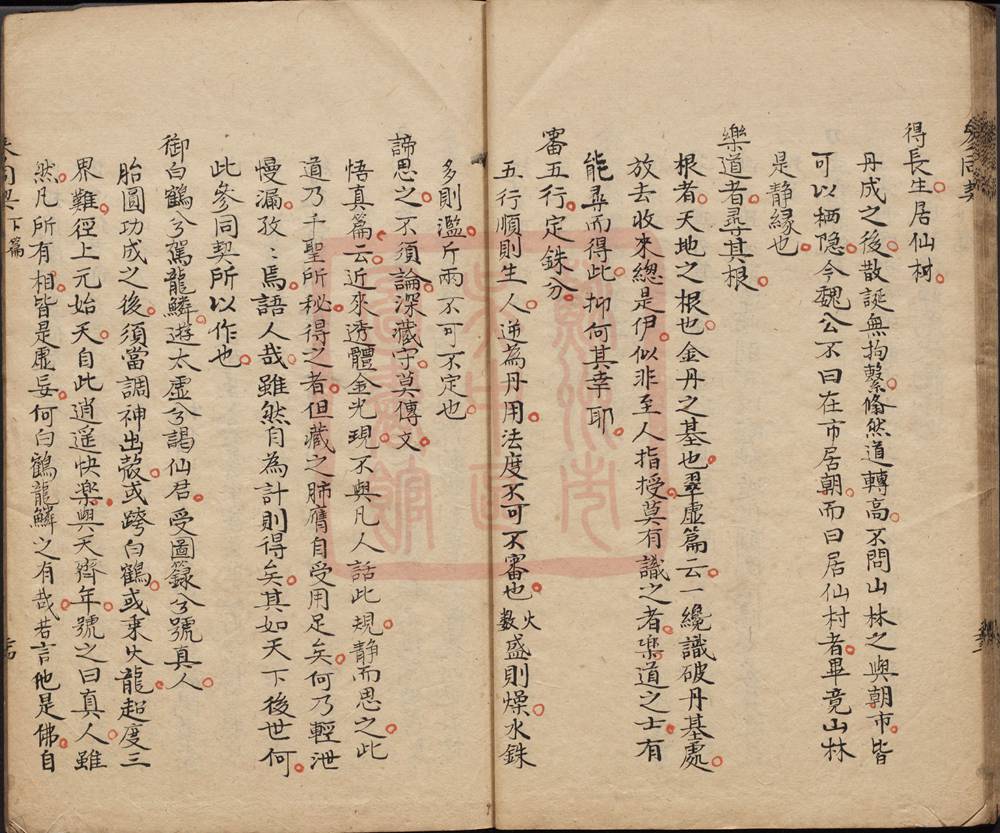 參同契
得長生居仙村
丹成之後散誕無拘繫翛然道轉高不問山林之與朝市皆
可以栖隐今魏公不曰在市居朝而曰居仙村者畢竟山林
是静緣也
樂道者尋其根
根者天地之根也金丹之基也翠虛篇云一纔識破丹基處
放去收來總是伊似非至人指授莫有識之者樂道之士有
能尋而得此抑何其幸耶
審五行定銖分
五行順則生人逆為丹用法度不可不審也火數盛則燥水銖
多則濫斤兩不可不定也
諦思之不須論深藏守莫傳文
悟真篇云近來透體金光現不與凡人話此規静而思之此
道乃千聖所秘得之者但藏之肺膺自受用足矣何乃輕泄
慢漏孜〻焉語人哉雖然自為計則得矣其如天下後世何
此參同契所以作也
御白鶴兮駕龍鱗遊太虛兮謁仙君受圖籙兮號真人
胎圓功成之後須當調神出殼或跨白鶴或乘火龍超度三
界難徑上元始天自此逍遥快樂與天齊年號之曰真人雖
然凡所有相皆是虛妄何白鶴龍鱗之有哉若言他是佛自
參同契下篇